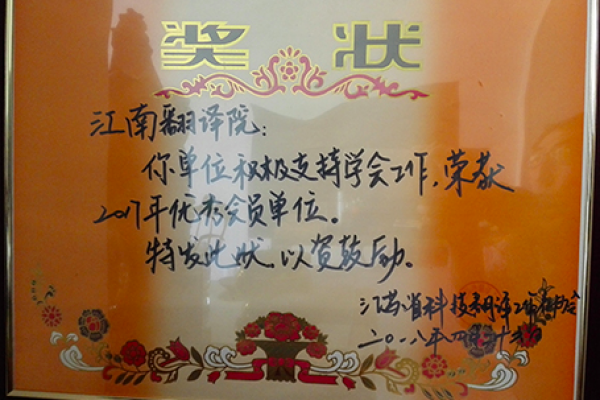 奖 状
江南翻译院:
你单位积极支持学会工作,荣获
2017年优秀会员单位。
特发此状,以资鼓励。
江苏省科技翻译工作者协会
二〇一八年四月二十